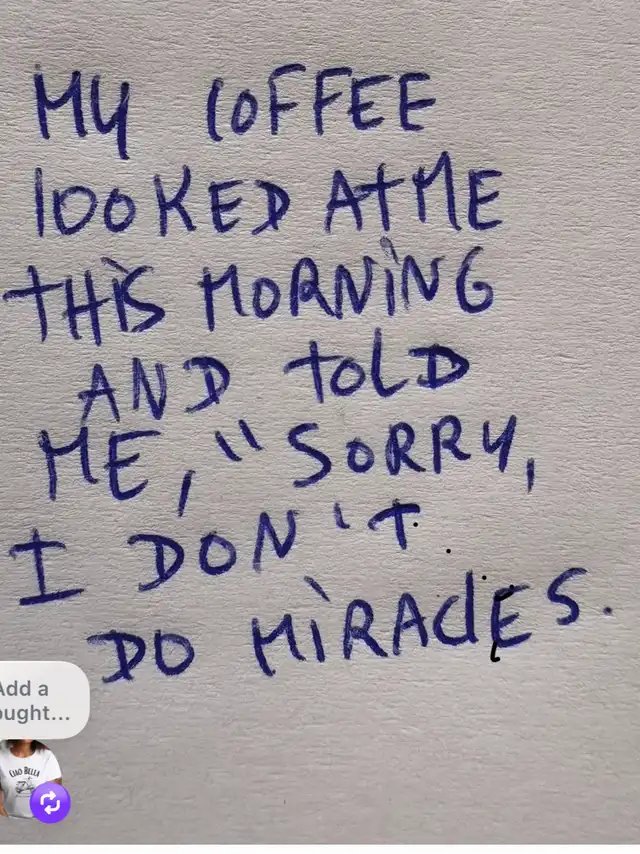 MY COFFEE
lOOKED AT ME
THIS MORNING
AND tOLD
ME, "SORRY,
I DON'T
DO MIRACLES.
Add a
ought...
CIAO BELLA